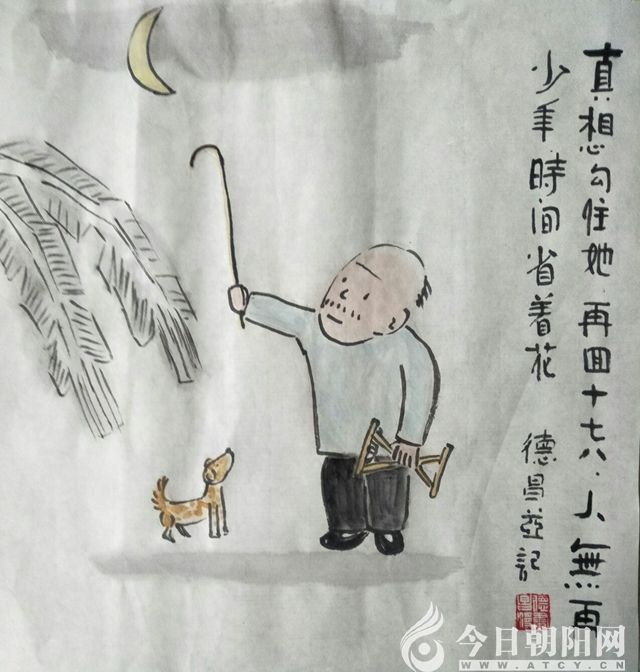 真想勾住她.再回十七八.人無再
少年.時间省着花
德昌並記
今日朝阳网
WWW.ATCY.CN